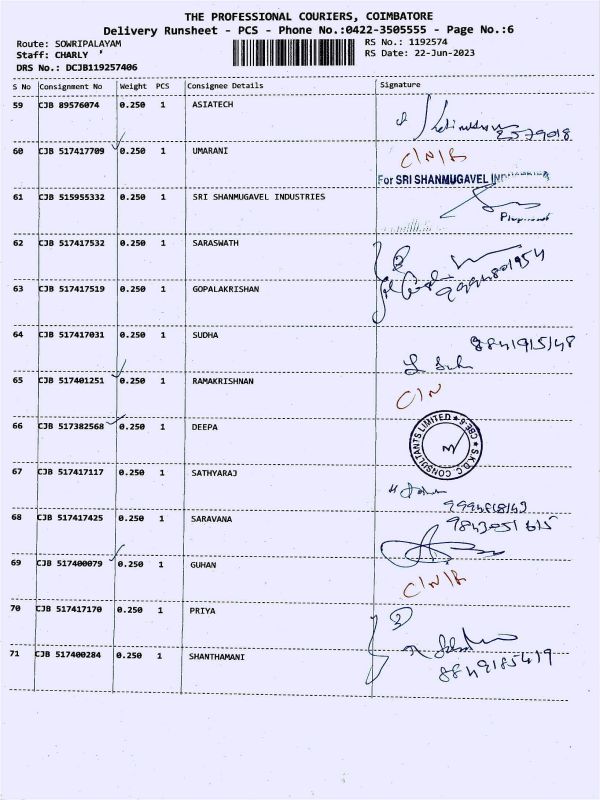 THE PROFESSIONAL COURIERS, COIMBATORE
Delivery Runsheet - PCS - Phone No.:0422-3505555 - Page No.:6
Route: SOWRIPALAYAM RS No.: 1192574
Staff: CHARLY ' RS Date: 22-Jun-2023
DRS No.: DCJB119257406
S No Consignment No Weight PCS Consignee Details Signature
59 CJB 89576074 0.250 1 ASIATECH
2579018
60 CJB 517417709 0.250 1 UMARANI C/N/R
For SRI SHANMUGAVEL INDUSTRIES
61 CJB 515955332 0.250 1 SRI SHANMUGAVEL INDUSTRIES
62 CJB 517417532 0.250 1 SARASWATH 2
9994801954
63 CJB 517417519 0.250 1 GOPALAKRISHAN
64 CJB 517417031 0.250 1 SUDHA 8841915148
65 CJB 517401251 0.250 1 RAMAKRISHNAN C/N
66 CJB 517382568 0.250 1 DEEPA S.K.D.C. CONSULTANTS LIMITED
67 CJB 517417117 0.250 1 SATHYARAJ
68 CJB 517417425 0.250 1 SARAVANA 9843051615
69 CJB 517400079 0.250 1 GUHAN C/N/R
70 CJB 517417170 0.250 1 PRIYA 2
71 CJB 517400284 0.250 1 SHANTHAMANI